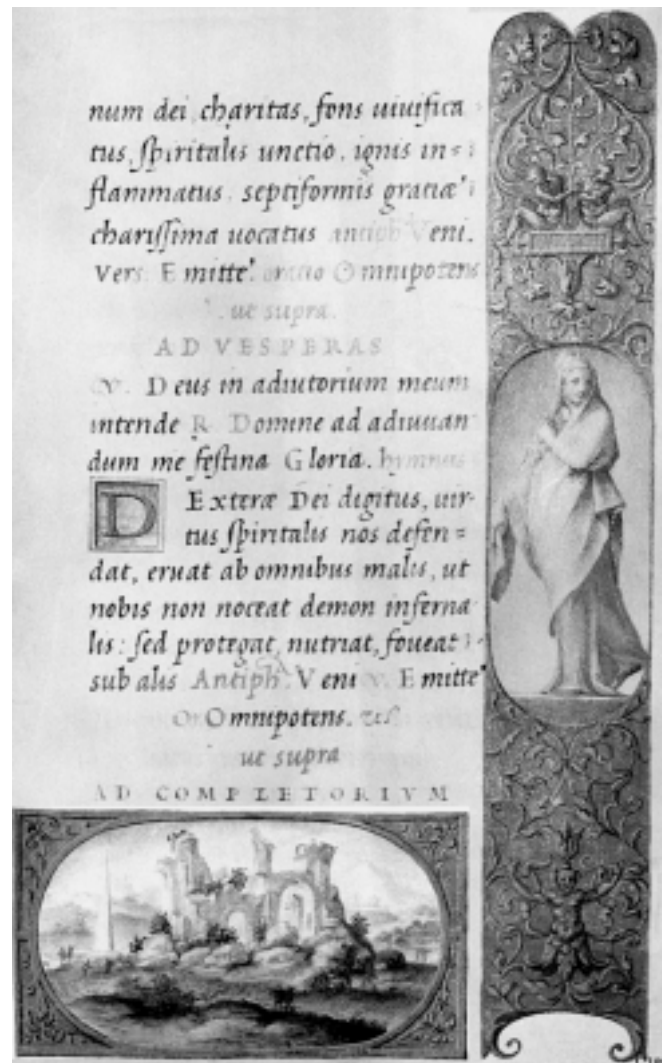 num dei, charitas, fons uiuifica
tus, spiritalis unctio, ignis in=
flammatus, septiformis gratiæ
charissima uocatus antiph Veni.
Vers. Emitte. oratio Omnipotens
ut supra.
AD VESPERAS
V. Deus in adiutorium meum
intende R Domine ad adiuuan
dum me festina Gloria. hymnus
DExteræ Dei digitus, uir-
tus spiritalis nos defen=
dat, eruat ab omnibus malis, ut
nobis non noceat demon inferna
lis: sed protegat, nutriat, foueat
sub alis Antiph. Veni V. Emitte
Omnipotens.
ut supra
AD COMPLETORIVM